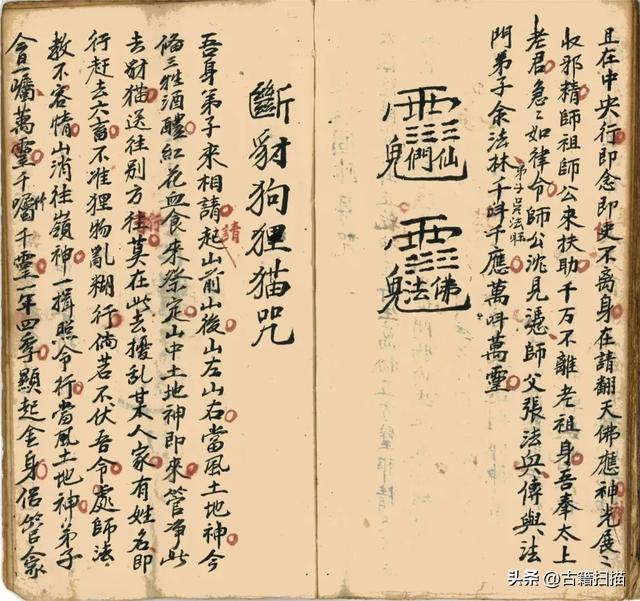 且在中央行即念即使不離身在請翻天佛應神光展〻
収邪精師祖師公來扶助千万不離老祖身吾奉太上
老君急〻如律令師公沈見憑師父張法與傳與法
門弟子余法林千呌千應萬呌萬靈
弟子吳法
仙們鬼
佛法鬼
斷豺狗狸猫咒
吾身弟子來相請起山前山後山左山右當風土地神今
請
俻三牲酒醴紅花血食來祭定山中土地神即來管净此
去豺猫送往别方徃莫在此去擾乱某人家有姓名即
行
行赶去六畜不准狸物亂糊行倘若不伏吾令處師法
教不容情山消往嶺神一揖照令行當風土地神弟子
今日一嘱萬靈千嘱千靈一年四季顯起金身侣管
头条 @古籍扫描